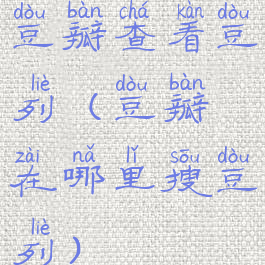 dòu bàn chá kàn dòu
豆瓣查看豆
liè dòu bàn
列（豆瓣
zài nǎ lǐ sōu dòu
在哪里搜豆
liè
列）